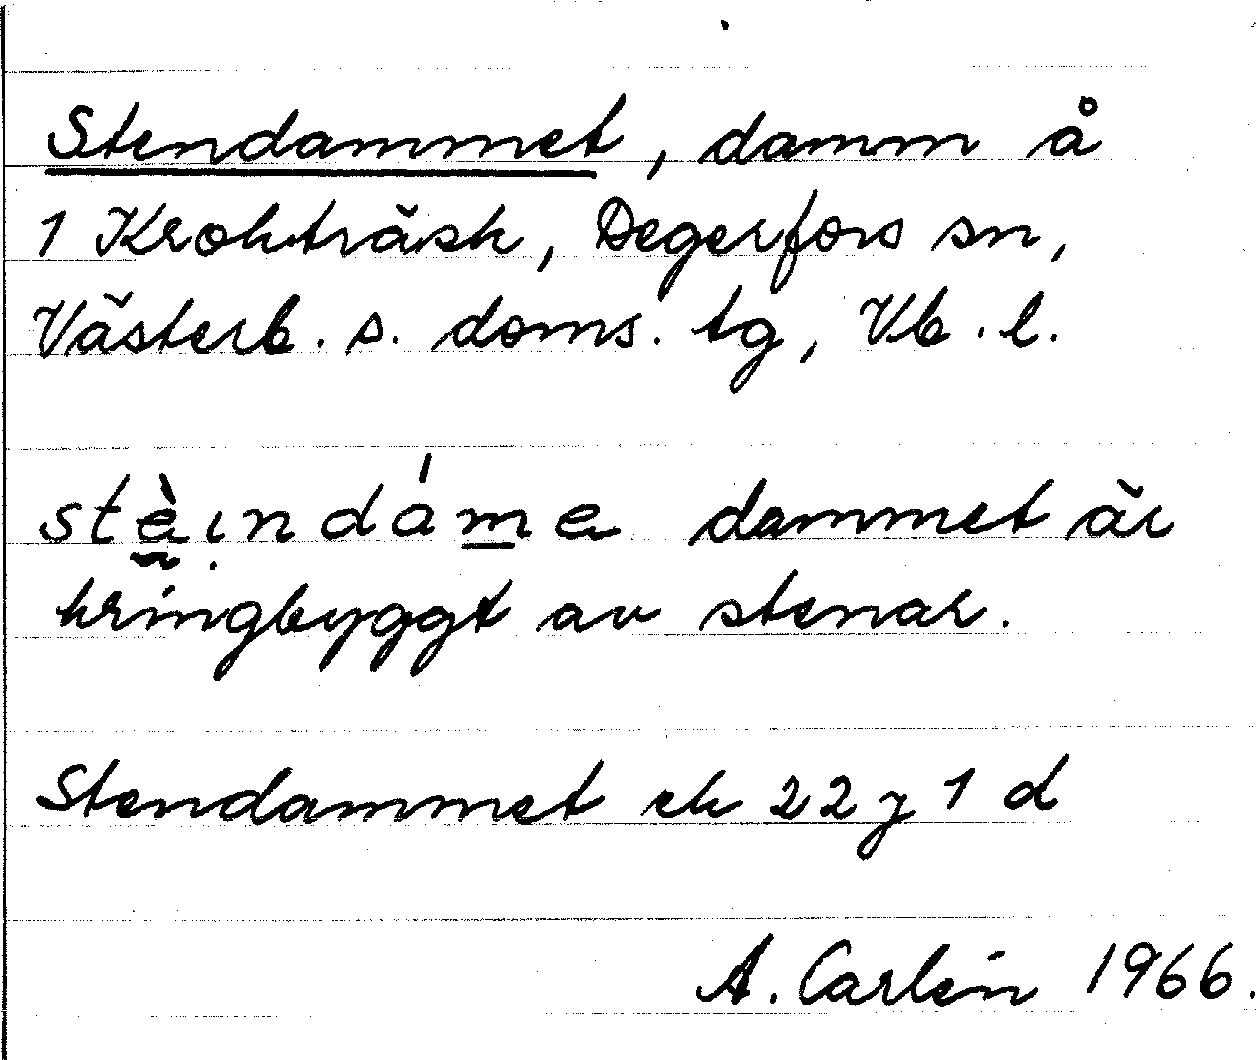 Stendammet, damm å
1 Krokträsk, Degerfors sn,
Västerb. s. doms. tg, Vb. l.
stèịndám̲e dammet är
kringbyggt av stenar.
Stendammet ek 22 j 1 d
A. Carlén 1966.